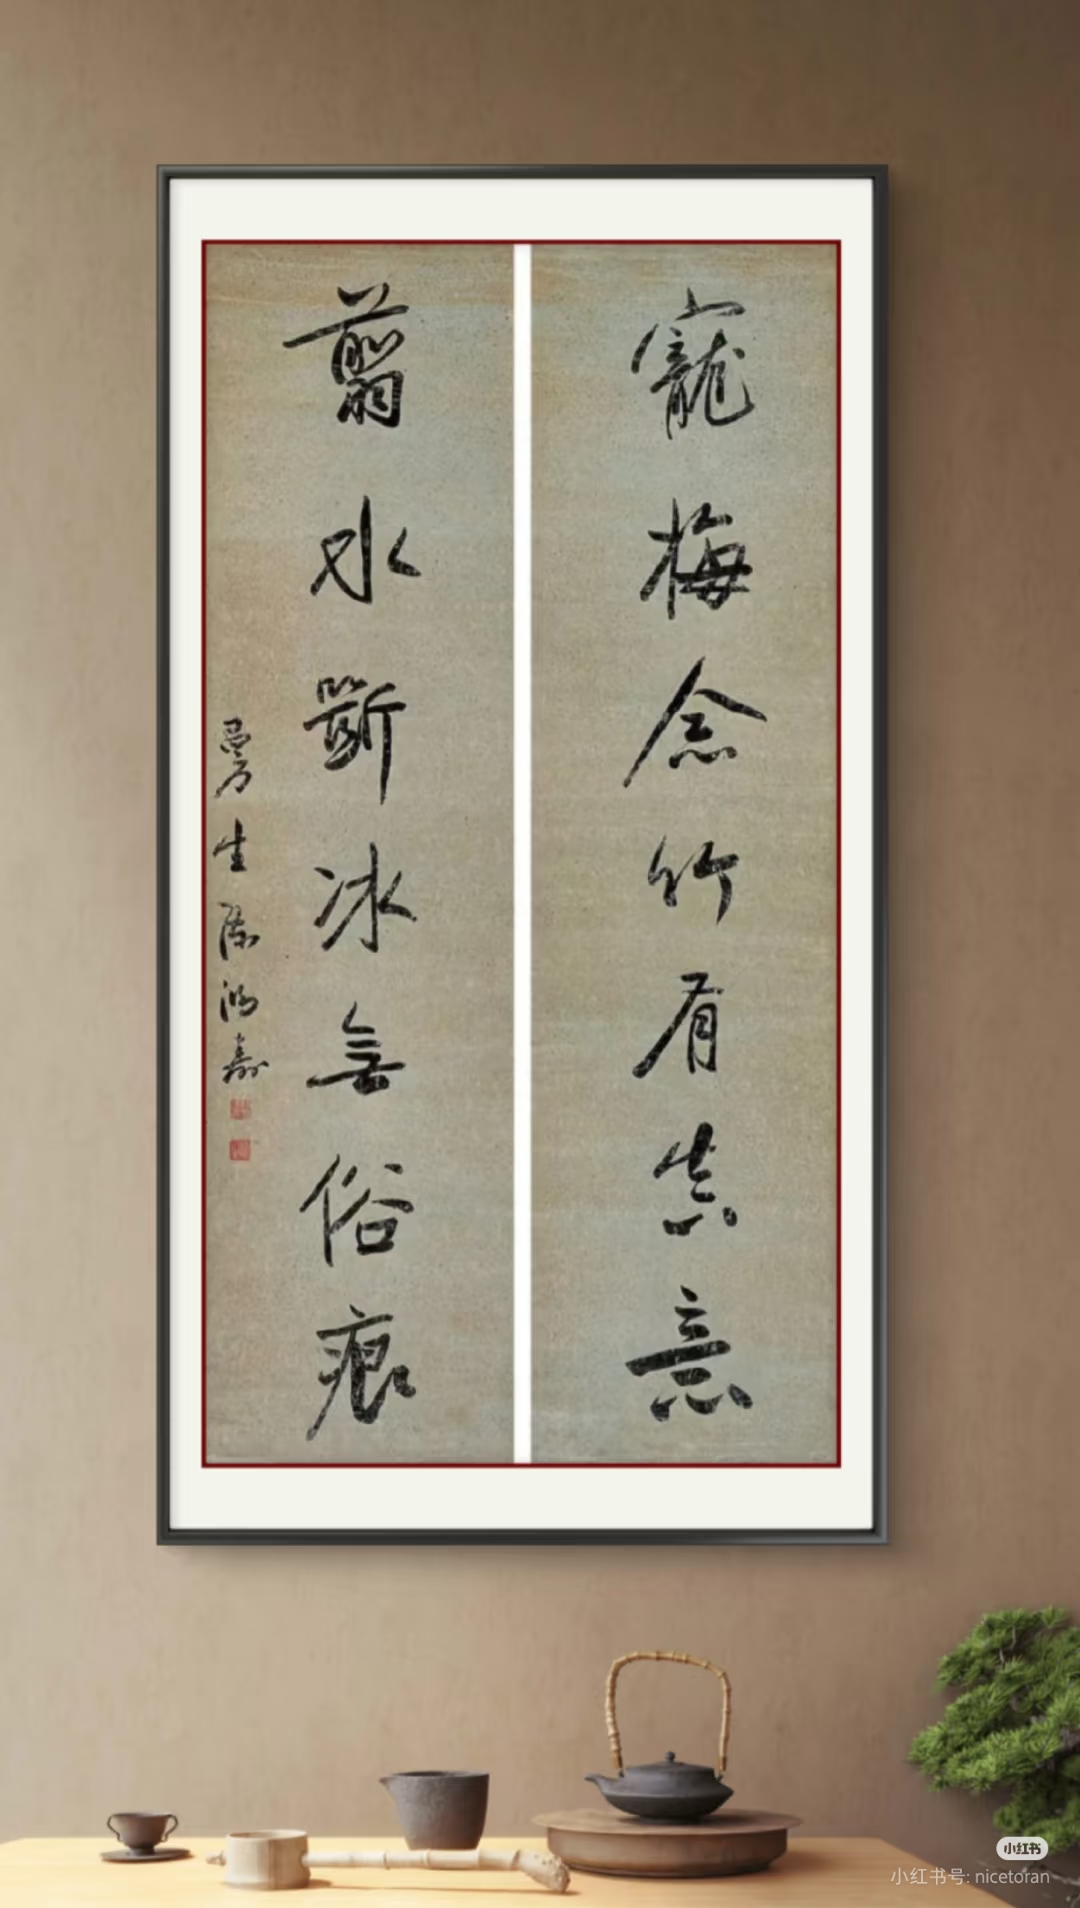 寵梅念竹有真意
翦水斷冰無俗痕
曼生陳鴻壽
小红书
小红书号: nicetoran